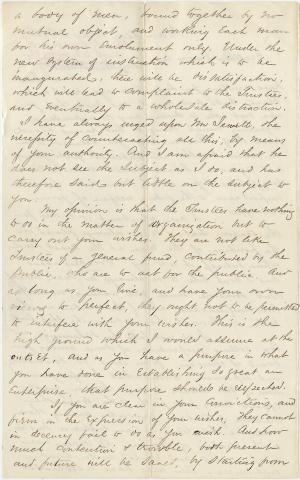 a body of men, bound together by no
mutual object, and working each man
for his own emolument only. Under the
new system of instruction which is to be
inaugurated, there will be dissatisfaction,
which will lead to complaint to the Trustees,
and eventually to a wholesale distraction.
I have always urged upon Mr Jewett, the
necessity of counteracting all this, by means
of your authority. And I am afraid that he
does not see the subject as I do, and has
therefore said but little on the subject to
you.
My opinion is that the Trustees have nothing
to do in the matter of organization but to
carry out your wishes. They are not like
Trustees of a general fund, contributed by the
public, who are to act for the public. And
as long as you live, and have your own
to perfect, they ought not to be permitted
to interfere with your wishes. This is the
high ground which I would assume at the
outset, and as you have a purpose in what
you have done in establishing so great an
enterprise, that purpose should be respected.
If you are clear in your convictions, and
firm in the expression of your wishes, they cannot
in decency fail to do as you wish. And how
much contention & trouble, both present
and future will be saved, by starting from